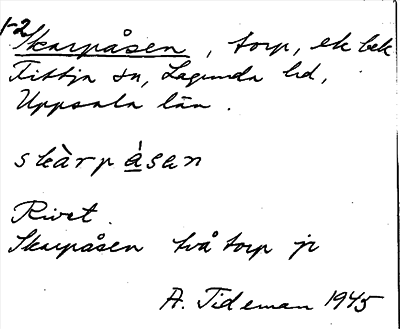 1-2
Skarpåsen, torp, ek bek
Fittja sn, Lagunda hd,
Uppsala län.
skàrpåsen
Rivet.
Skarpåsen två torp jr
A. Tideman 1945